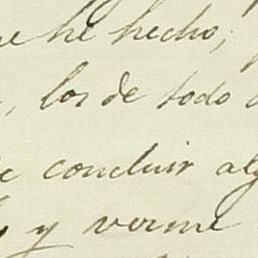 e he hecho;
, los de todo
e concluir alg
y verme